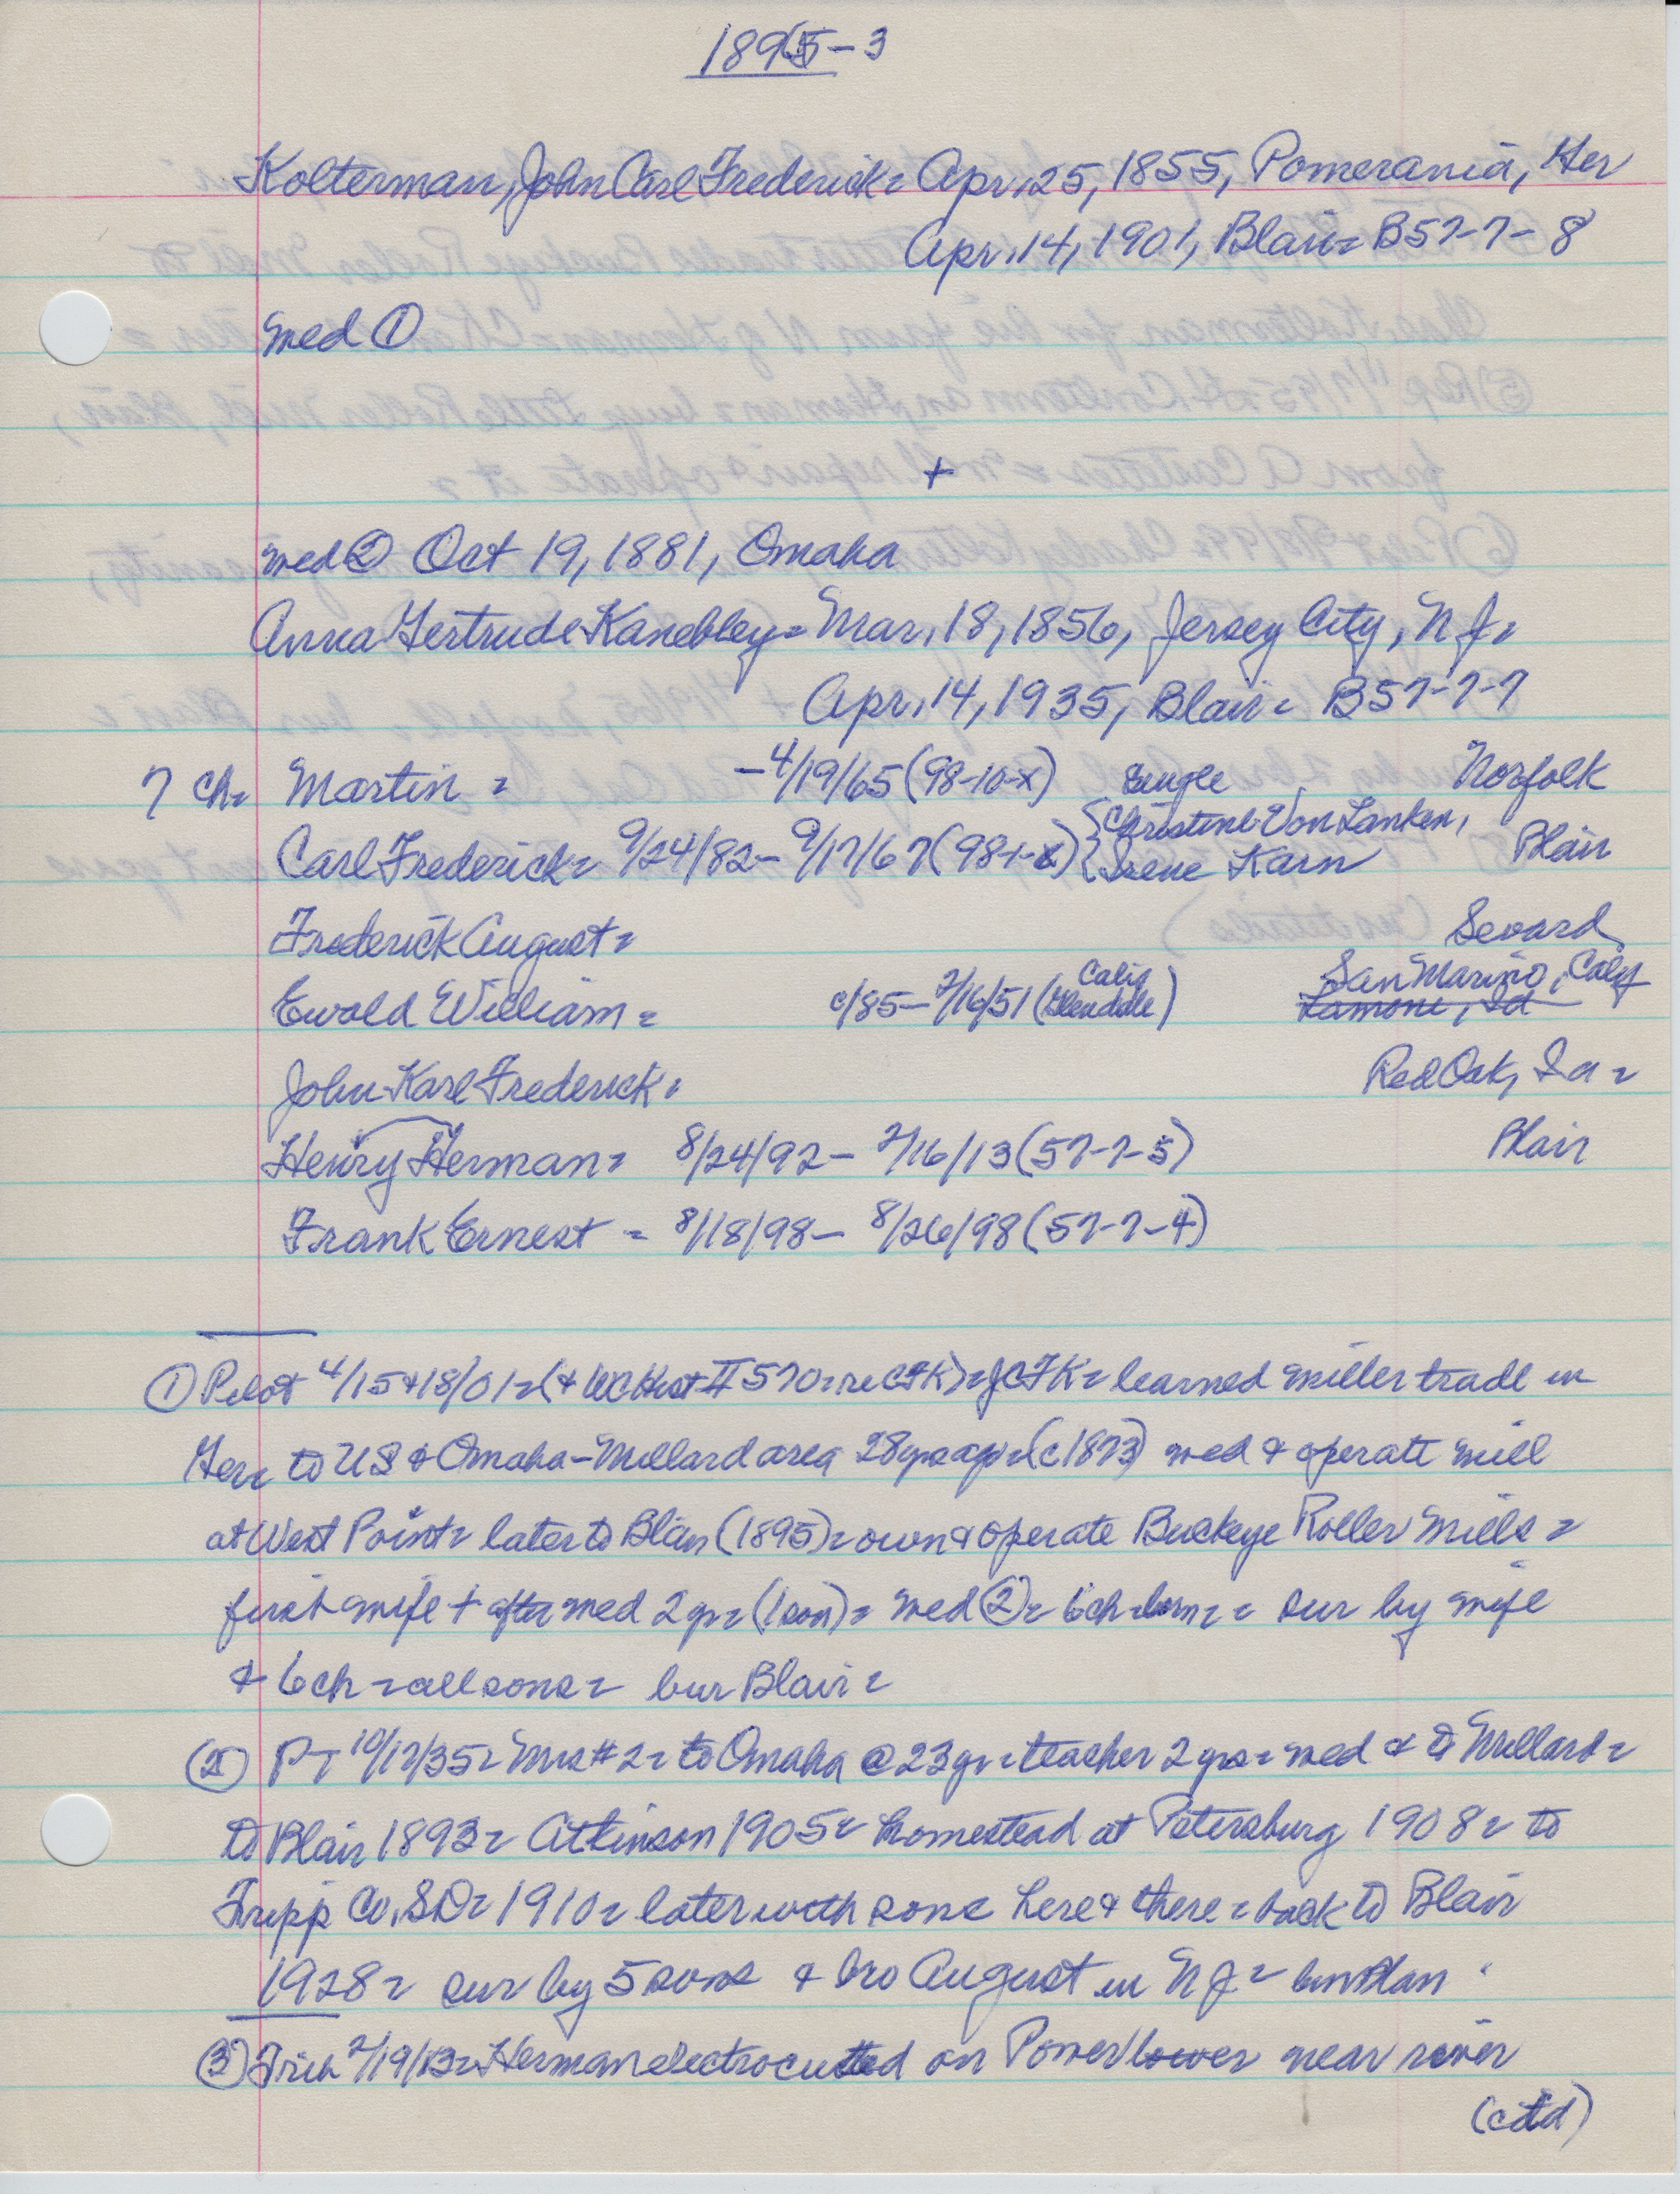 1895-3
Kolterman, John Carl Frederick= Apr. 25, 1855, Pomerania, Ger
Apr. 14, 1901, Blair= B57-7-8
med ①
+
med ② Oct 19, 1881, Omaha
Anna Gertrude Kanebley= Mar. 18, 1856, Jersey City, NJ=
Apr. 14, 1935, Blair= B57-7-7
7 ch= Martin = -4/19/65 (98-10-x) single Norfolk
Carl Frederick= 9/24/82- 9/17/67 (98-1-x) {Christine Von Lanken, Irene Karn Blair
Frederick August= Seward
Ewald William= c/85- 7/16/51 (Glendale Calif) San Marino, Calif Lamoni, Ia
John Karl Frederick= Red Oak, Ia=
Henry Herman= 8/24/92- 7/16/13 (57-7-5) Blair
Frank Ernest = 8/18/98- 8/26/98 (57-7-4)
① Pilot 4/15+18/01= (+ WC Hist II 570= re CFK)= JCFK= learned miller trade in
Ger= to US & Omaha-Millard area 28 yrs ago= (c1873) med & operate mill
at West Point= later to Blair (1895)= own & operate Buckeye Roller Mills=
first wife + after med 2 yr= (1 son)= med ②= 6 ch born= = sur by wife
& 6 ch= all sons= bur Blair=
② PT 10/17/35= Mrs #2= to Omaha @ 23 yr= teacher 2 yrs= med & to Millard=
to Blair 1893= Atkinson 1905= homestead at Petersburg 1908= to
Tripp Co, SD= 1910= later with sons here & there= back to Blair
1928= sur by 5 sons & bro August in NJ= bur Blair
③ Trib 7/19/13= Herman electrocuted on Power tower near river
(ctd)